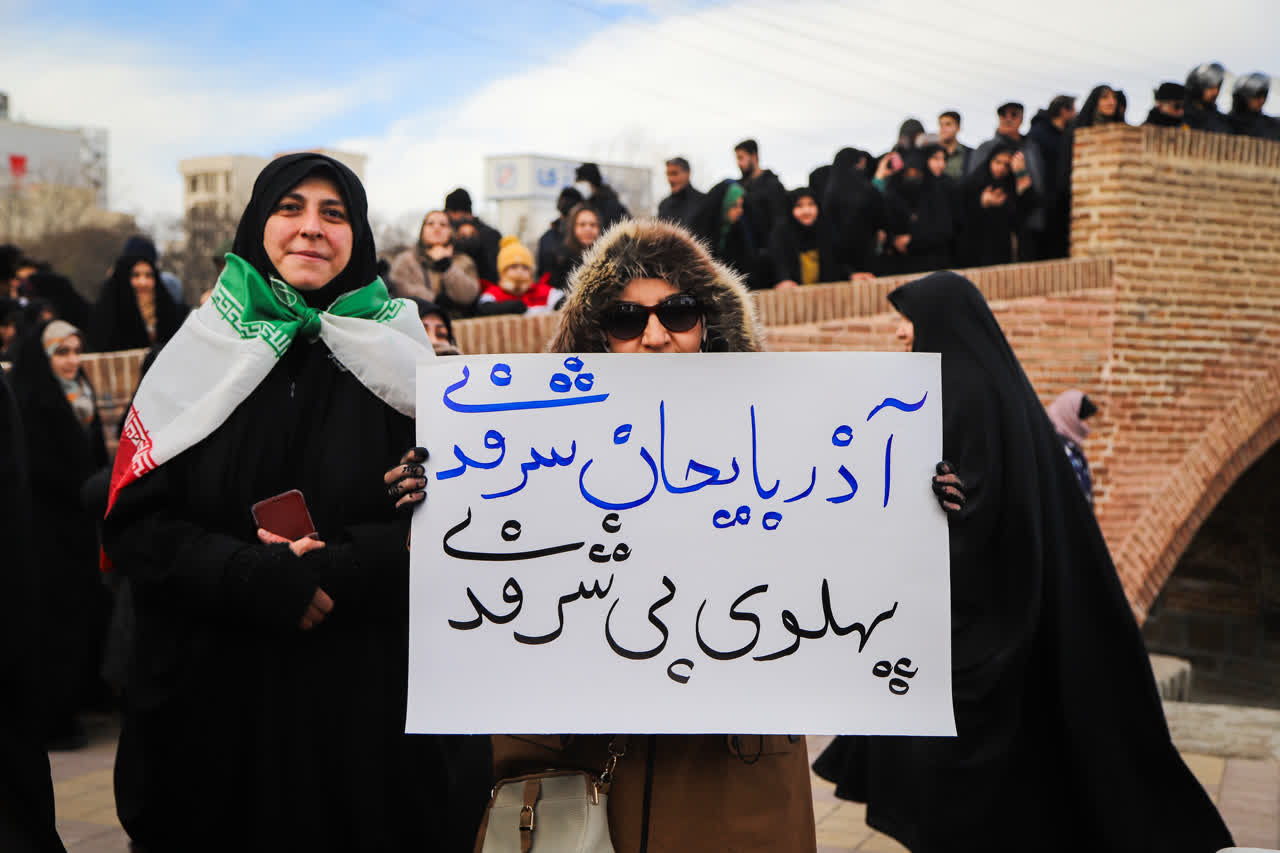 آذربایجان شرفدی
پهلوی بی شرفدی